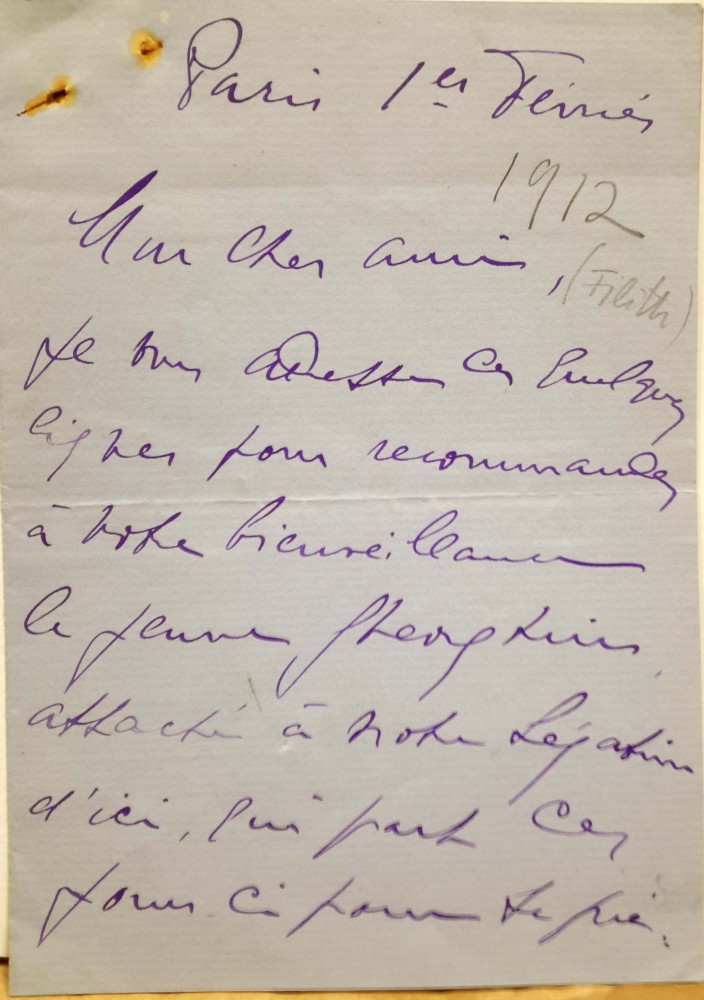 Paris 1er Février
1912
Mon cher ami,
(Filitti)
Je vous adresse ces quelques
lignes pour recommander
à votre bienveillance
le jeune
attaché à notre Légation
d'ici, qui part ces
jours ci pour